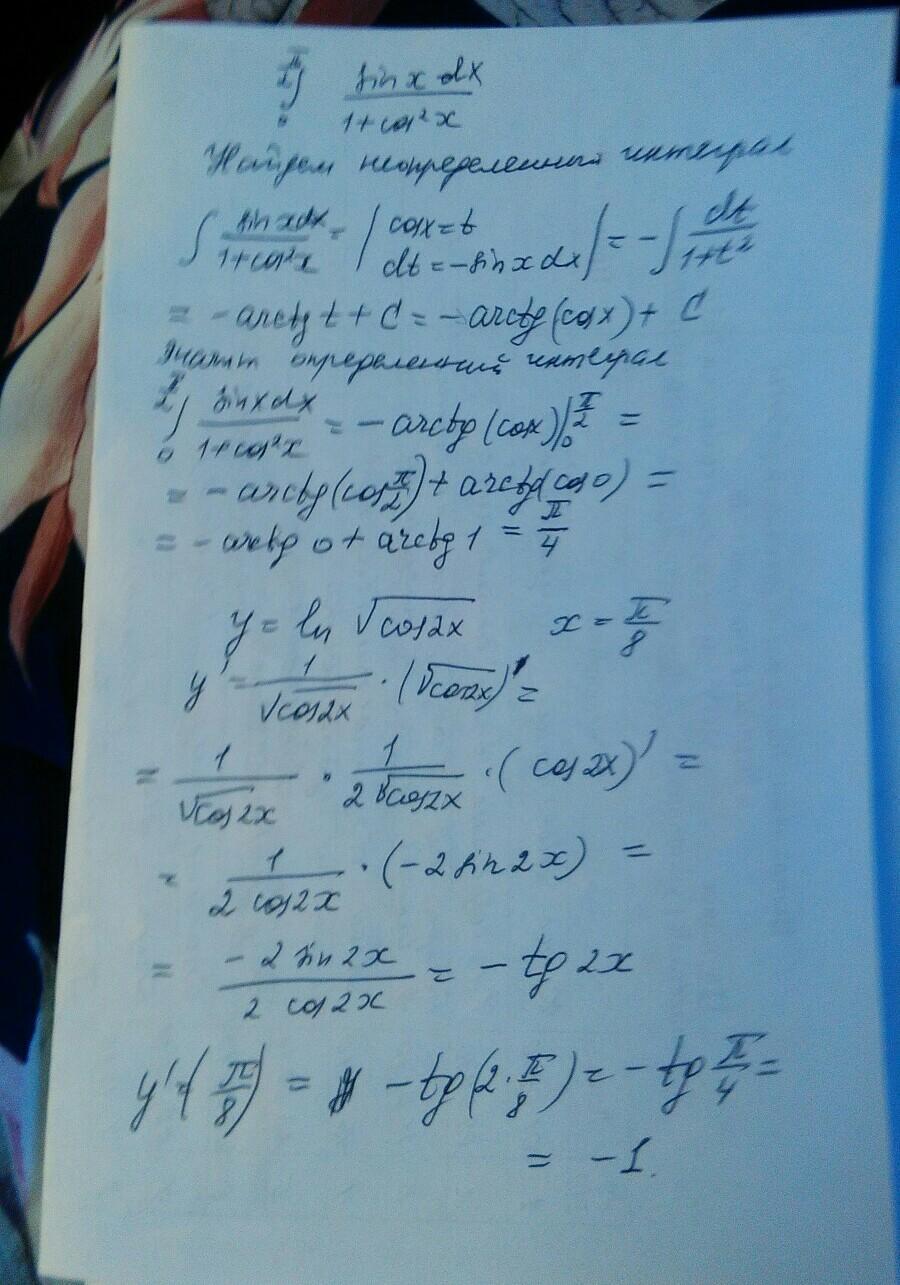 ∫₀^{π/2} sin x dx / (1+cos²x)
Найдем неопределенный интеграл
∫ sin x dx / (1+cos²x) = | cos x = t  dt = -sin x dx | = -∫ dt / (1+t²)
= -arctg t + C = -arctg(cos x) + C
Значит определенный интеграл
∫₀^{π/2} sin x dx / (1+cos²x) = -arctg(cos x)|₀^{π/2} =
= -arctg(cos π/2) + arctg(cos 0) =
= -arctg 0 + arctg 1 = π/4
y = ln √(cos 2x)    x = π/8
y' = 1/√(cos 2x) · (√(cos 2x))' =
= 1/√(cos 2x) · 1/(2√(cos 2x)) · (cos 2x)' =
= 1/(2 cos 2x) · (-2 sin 2x) =
= -2 sin 2x / (2 cos 2x) = -tg 2x
y'(π/8) = -tg(2·π/8) = -tg π/4 =
= -1.